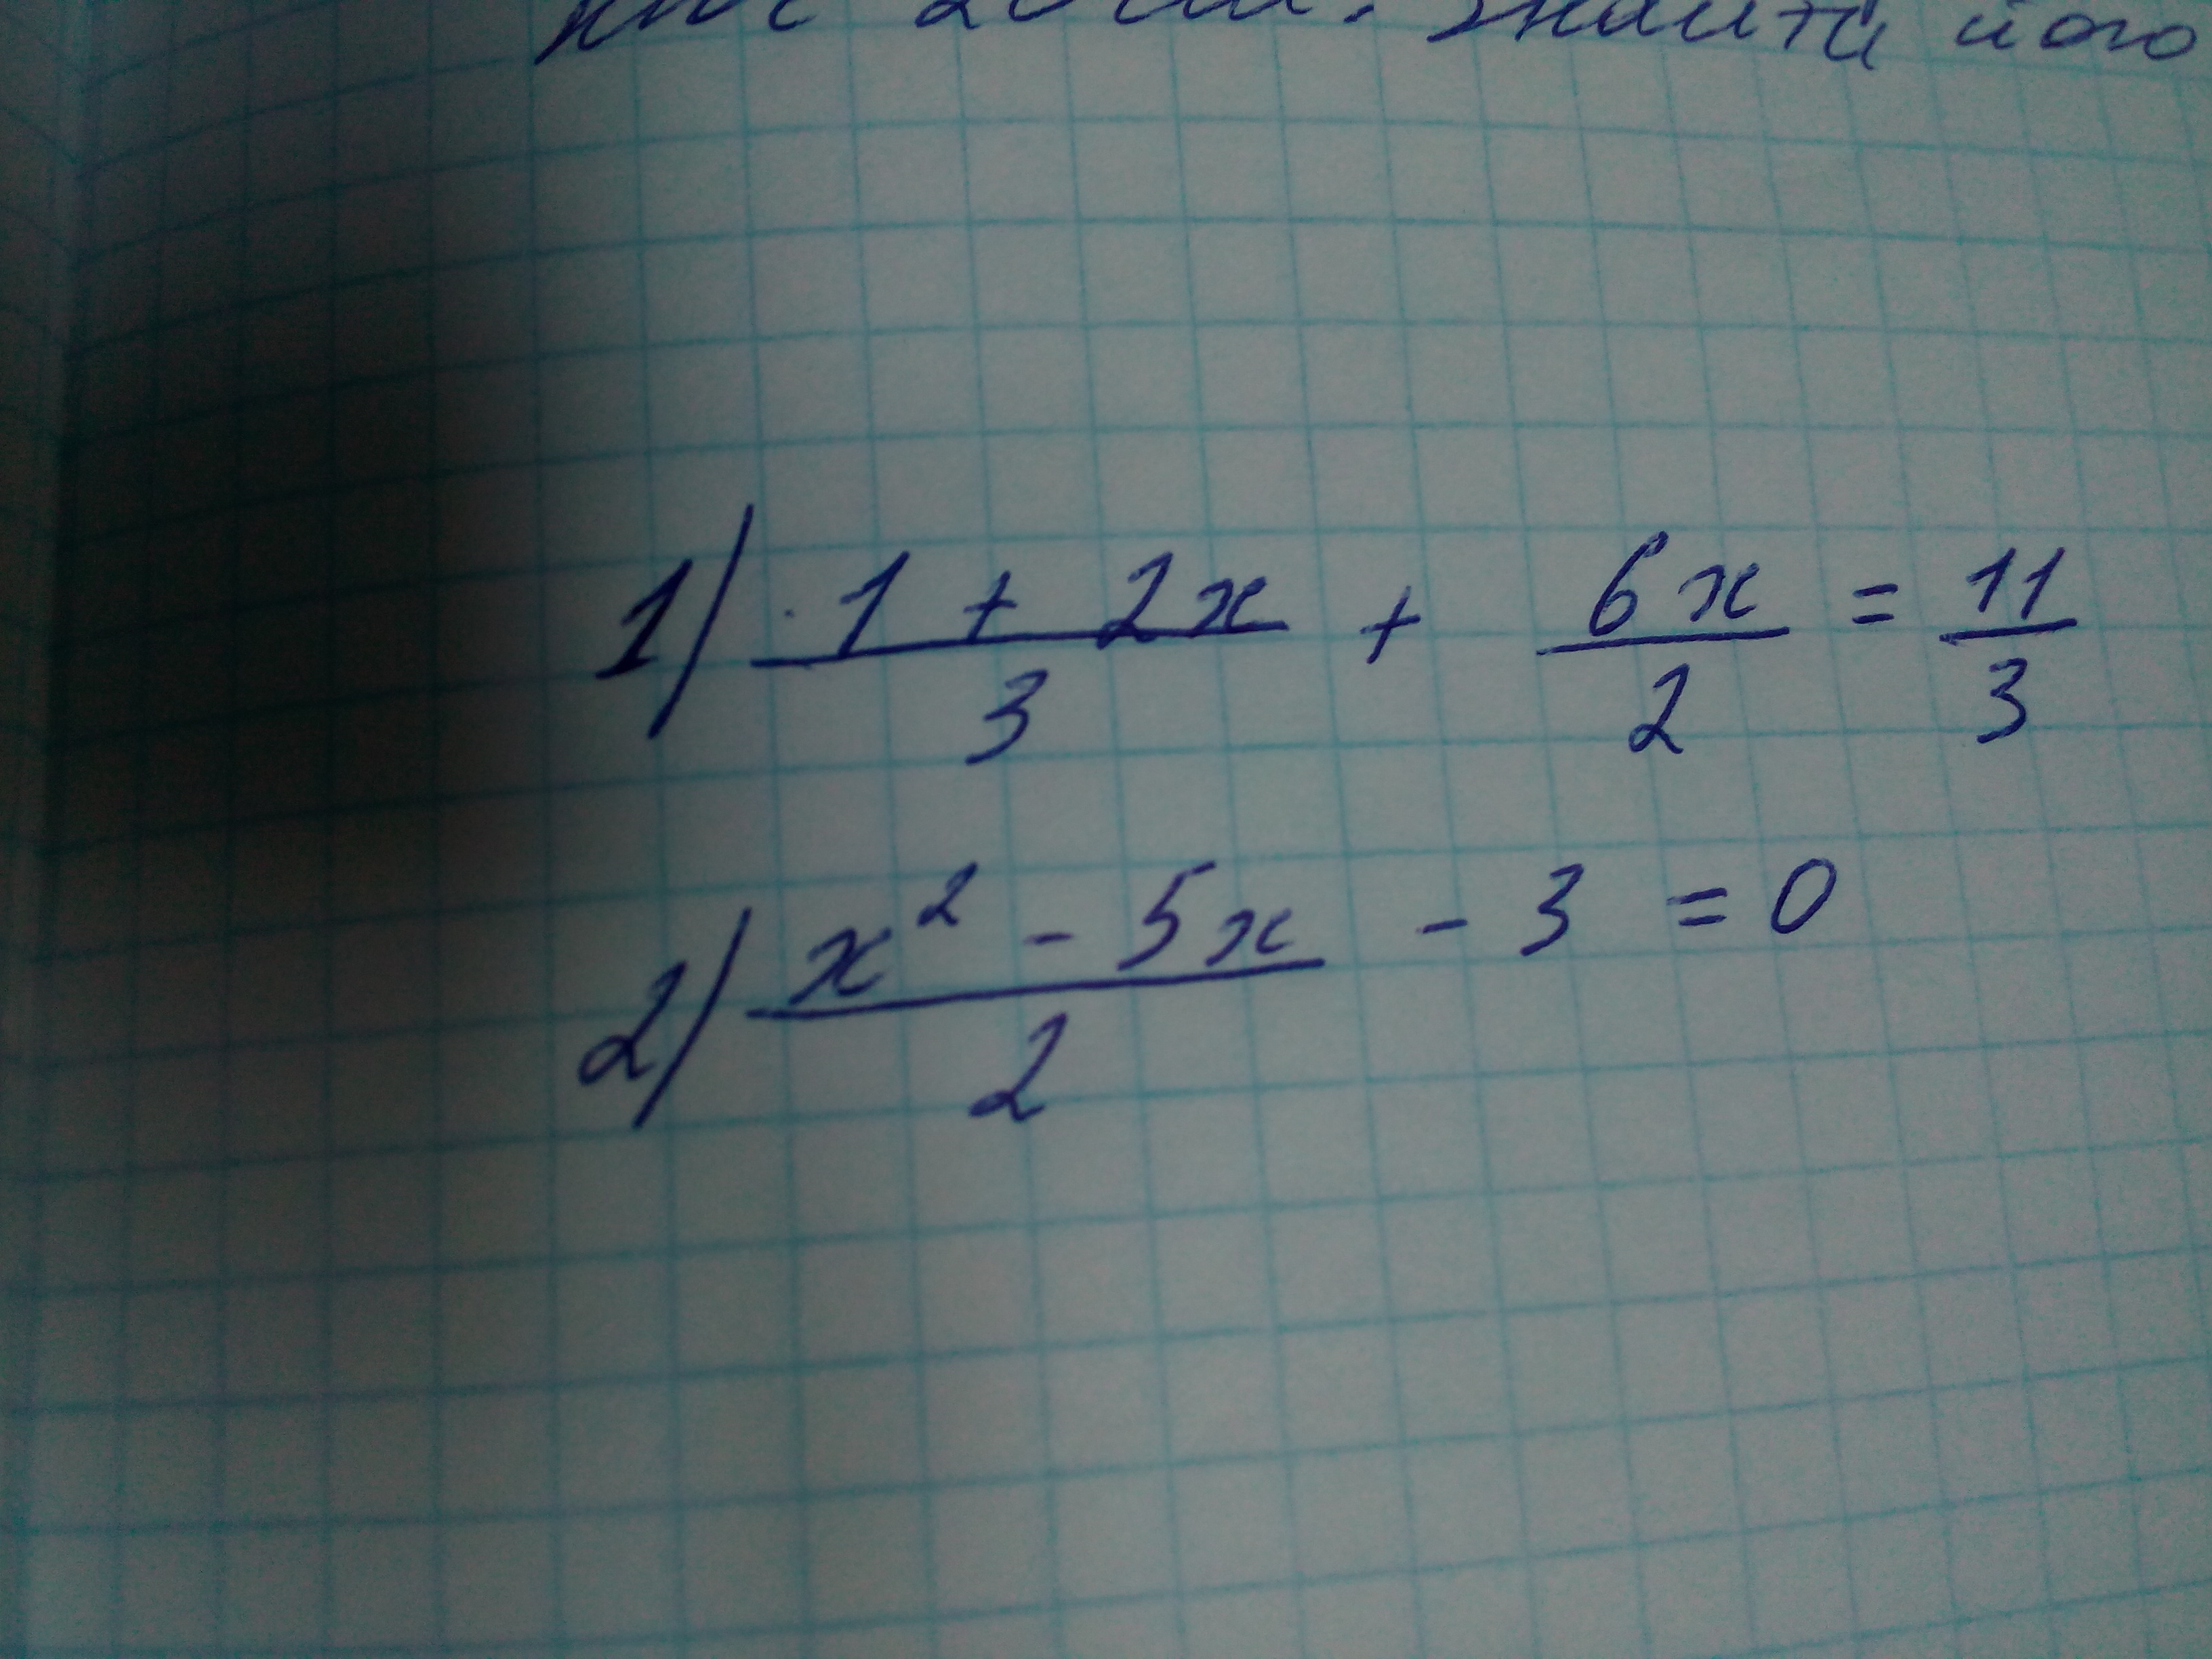 20 см. Знайти його
1) (1 + 2x)/3 + 6x/2 = 11/3
2) (x² - 5x)/2 - 3 = 0